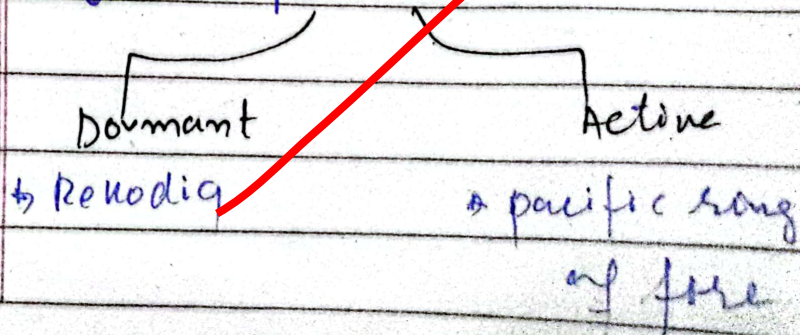 Dormant Active
↳ Rekodiq → pacific ring
of fire